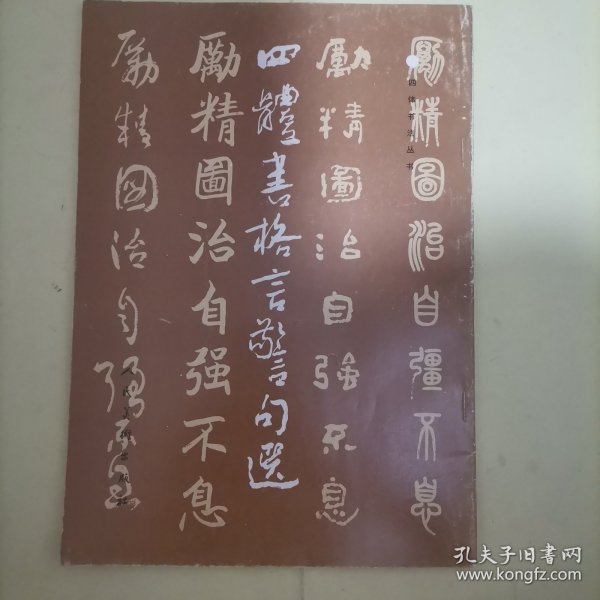 勵精圖治自彊不息
四体书法丛书
勵精圖治自强不息
四體書格言警句選
勵精圖治自强不息
勵精圖治自强不息
人民美術出版社
孔夫子旧书网
www.kongfz.com